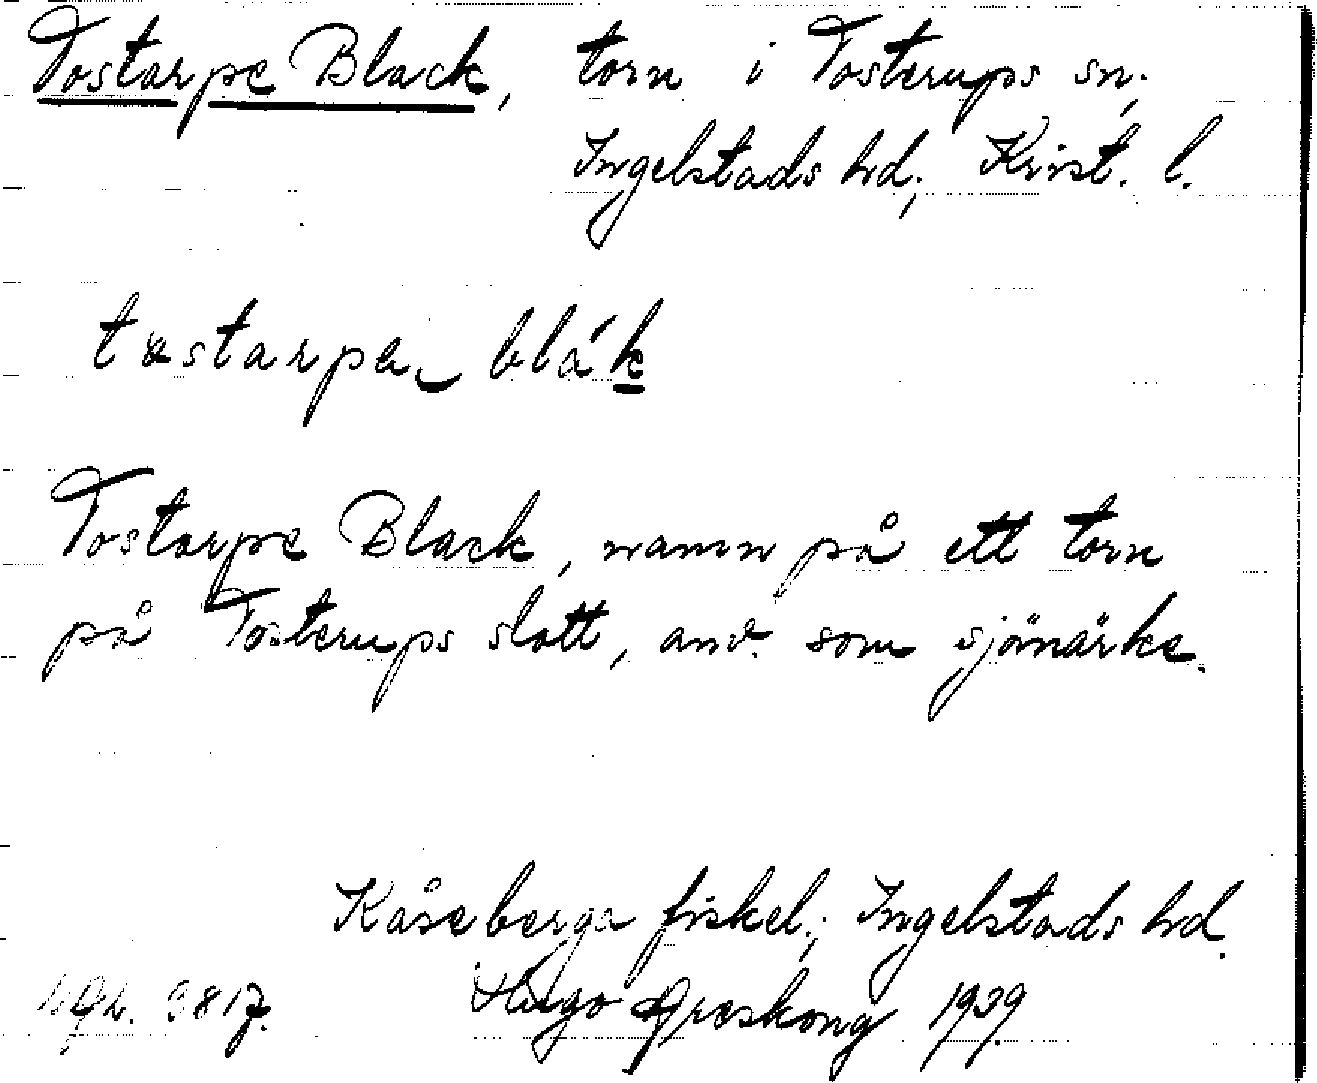 Tostarpe Black, torn i Tosterups sn,
Ingelstads hd, Krist. l.
tostarpe blák
Tostarpe Black, namn på ett torn
på Tosterups slott, anv. som sjömärke.
Kåseberga fiskel., Ingelstads hd.
3817. Hugo Areskoug 1939